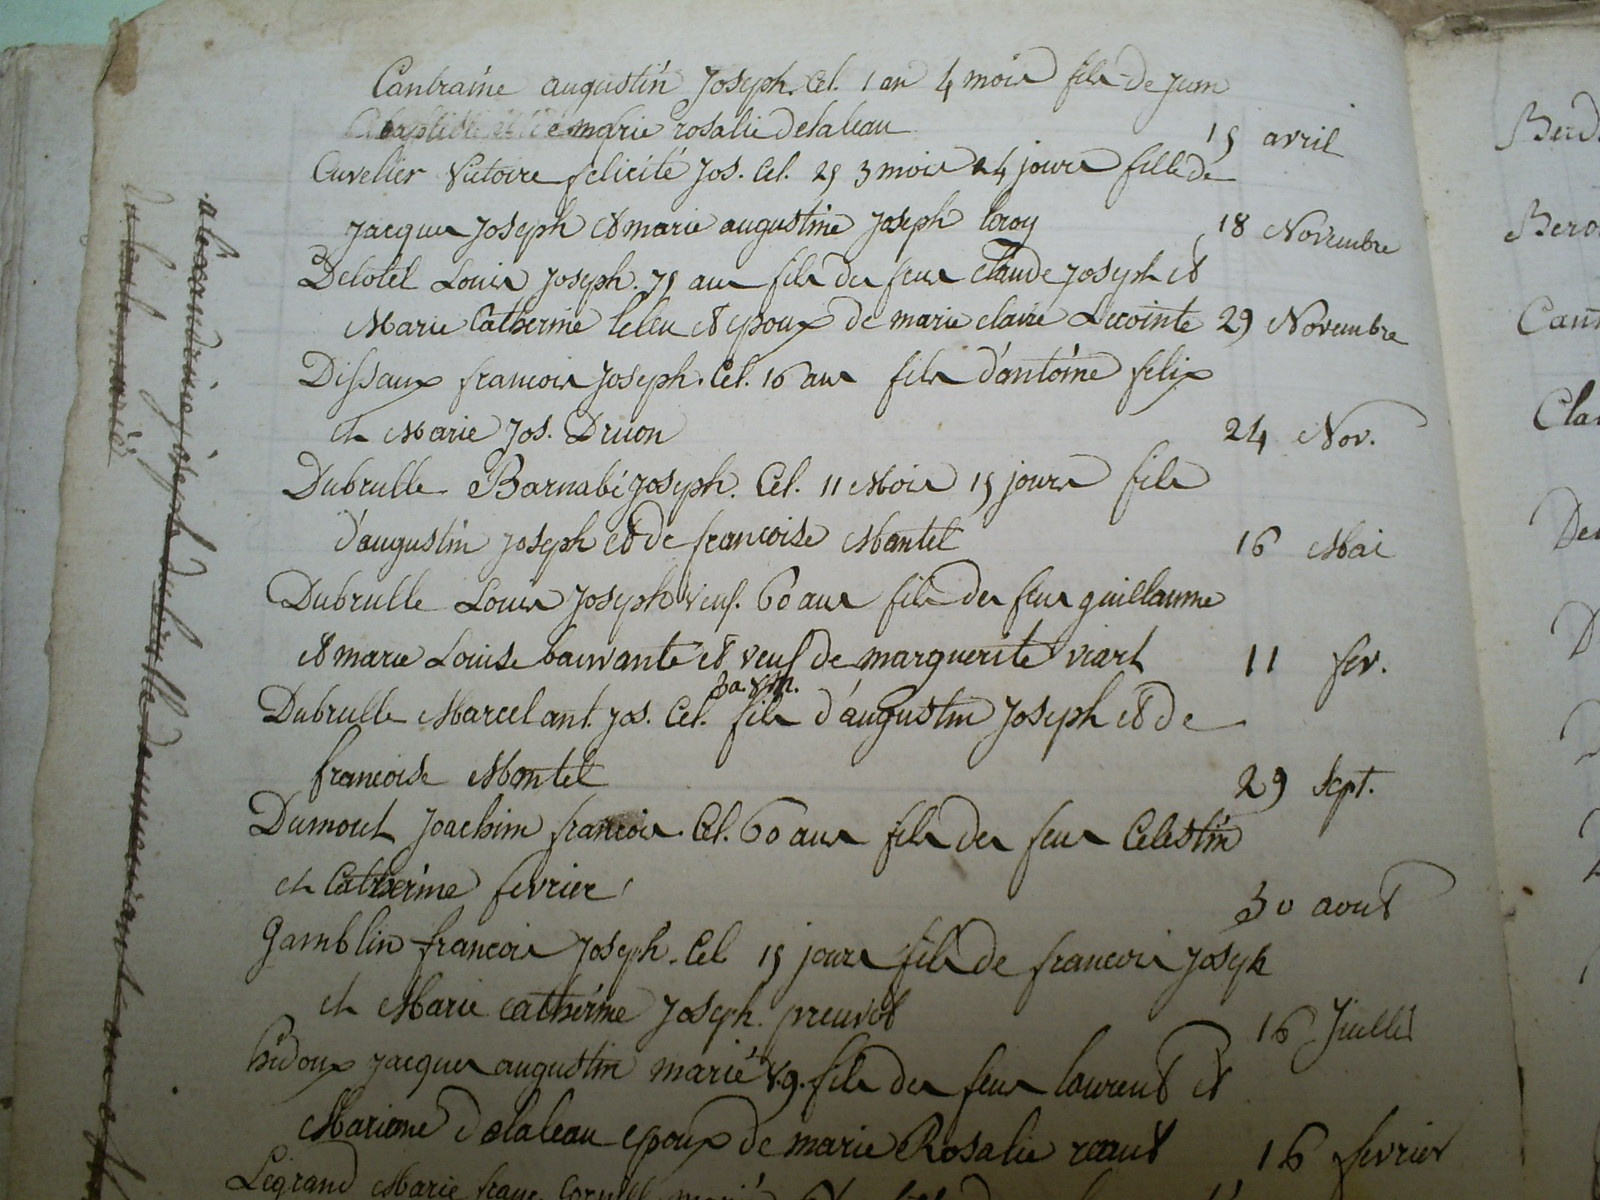 Cantraine augustin Joseph. Cel. 1 an 4 mois fils de Jean
Baptiste et de marie rosalie delaleau 15 avril
Cuvelier Victoire felicité Jos. Cel. 25 3 mois 24 jours fille de
jacques Joseph et marie augustine Joseph leroy 18 Novembre
Delotel Louis Joseph. 75 ans fils des feus Claude Joseph et
Marie Catherine leleu et epoux de marie claire Lecointe 29 Novembre
Dissaux francois Joseph. Cel. 16 ans fils d'antoine felix
et Marie Jos. Druon 24 Nov.
Dubrulle Barnabé Joseph. Cel. 11 Mois 15 jours fils
d'augustin Joseph et de francoise Mantel 16 Mai
Dubrulle Louis Joseph veuf. 60 ans fils des feus guillaume
et marie Louise et veuf de marguerite viart 11 fev.
Dubrulle Marcel ant. Jos. Cel. fils d'augustin Joseph et de
francoise Montel 29 Sept.
Dumout Joachim francois. Cel. 60 ans fils des feus Celestin
et Catherine fevrier 30 aout
Gamblin francois Joseph. Cel 15 jours fils de francois Joseph
et Marie catherine Joseph. preuvot 16 Juillet
hidoux jacques augustin marié fils des feus laurent et
Mariane delaleau epoux de marie Rosalie 16 fevrier
Legrand Marie franc.
alexandrine joseph dubrulle